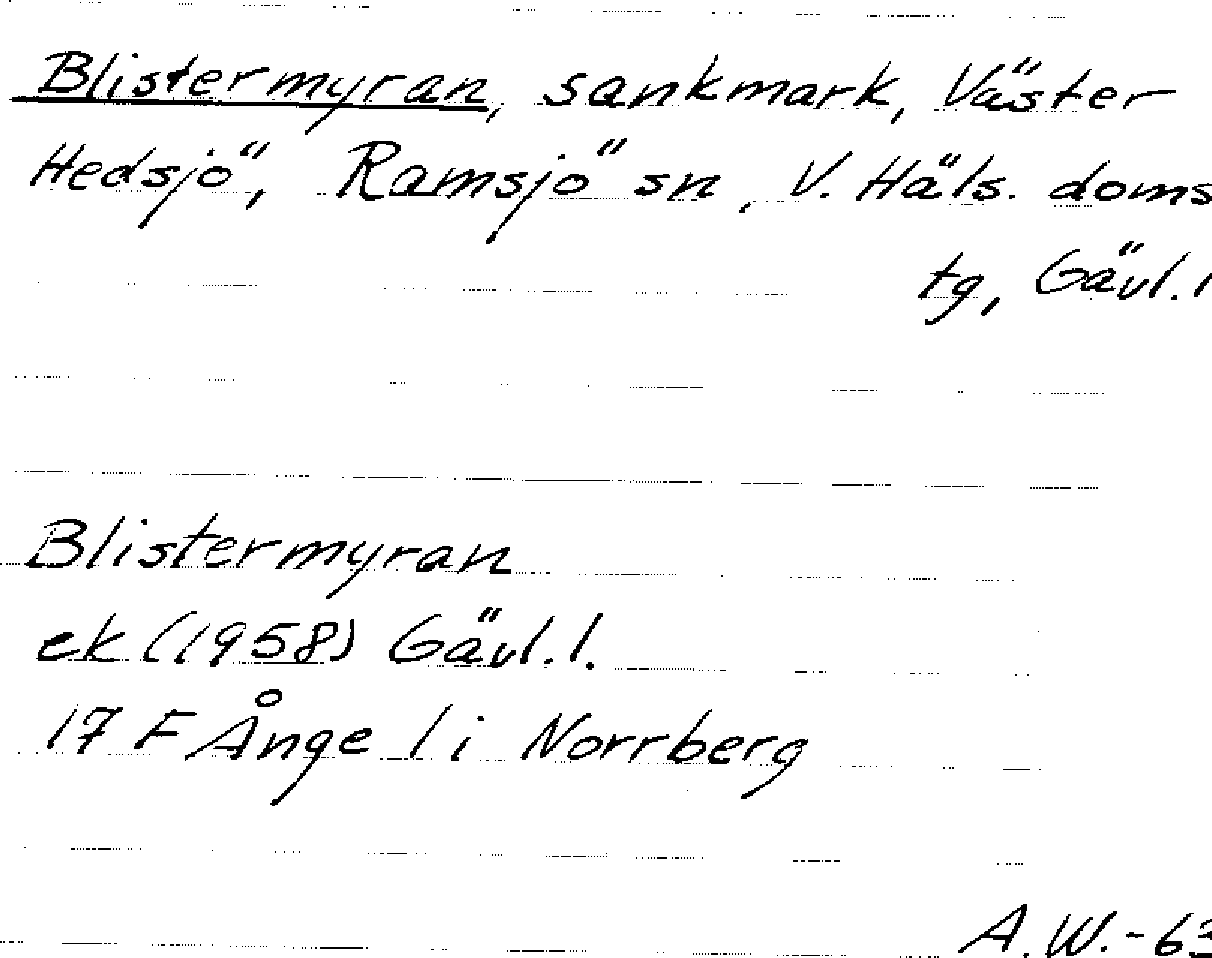 Blistermyran, sankmark, Väster
Hedsjö, Ramsjö sn, V. Häls. doms
tg, Gävl. l
Blistermyran
ek (1958) Gävl. l.
17 F Ånge 1 i Norrberg
A.W.-63